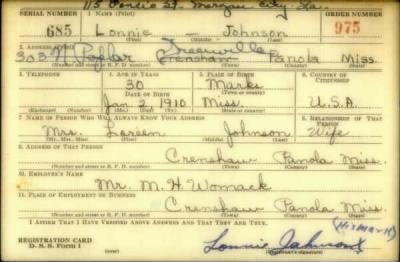 115 Street Morgan City, La.
SERIAL NUMBER 1. NAME (Print) ORDER NUMBER
685 Lonnie — Johnson 975
2. ADDRESS (Print) Greenville
303 N Poplar Crenshaw Panola Miss.
(Number and street or R. F. D. number) (Town) (County) (State)
3. TELEPHONE 4. AGE IN YEARS 5. PLACE OF BIRTH 6. COUNTRY OF CITIZENSHIP
30 Marks
DATE OF BIRTH (Town or county)
Jan 2 1910 Miss. U.S.A
(Exchange) (Number) (Mo.) (Day) (Yr.) (State or country)
7. NAME OF PERSON WHO WILL ALWAYS KNOW YOUR ADDRESS 8. RELATIONSHIP OF THAT PERSON
Mrs. Loreen Johnson Wife
(Mr., Mrs., Miss) (First) (Middle) (Last)
9. ADDRESS OF THAT PERSON
Crenshaw Panola Miss.
(Number and street or R. F. D. number) (Town) (County) (State)
10. EMPLOYER'S NAME
Mr. M. H. Womack
11. PLACE OF EMPLOYMENT OR BUSINESS
Crenshaw Panola Miss
(Number and street or R. F. D. number) (Town) (County) (State)
I AFFIRM THAT I HAVE VERIFIED ABOVE ANSWERS AND THAT THEY ARE TRUE.
(His Mark)
REGISTRATION CARD
D. S. S. Form 1 Lonnie Johnson X